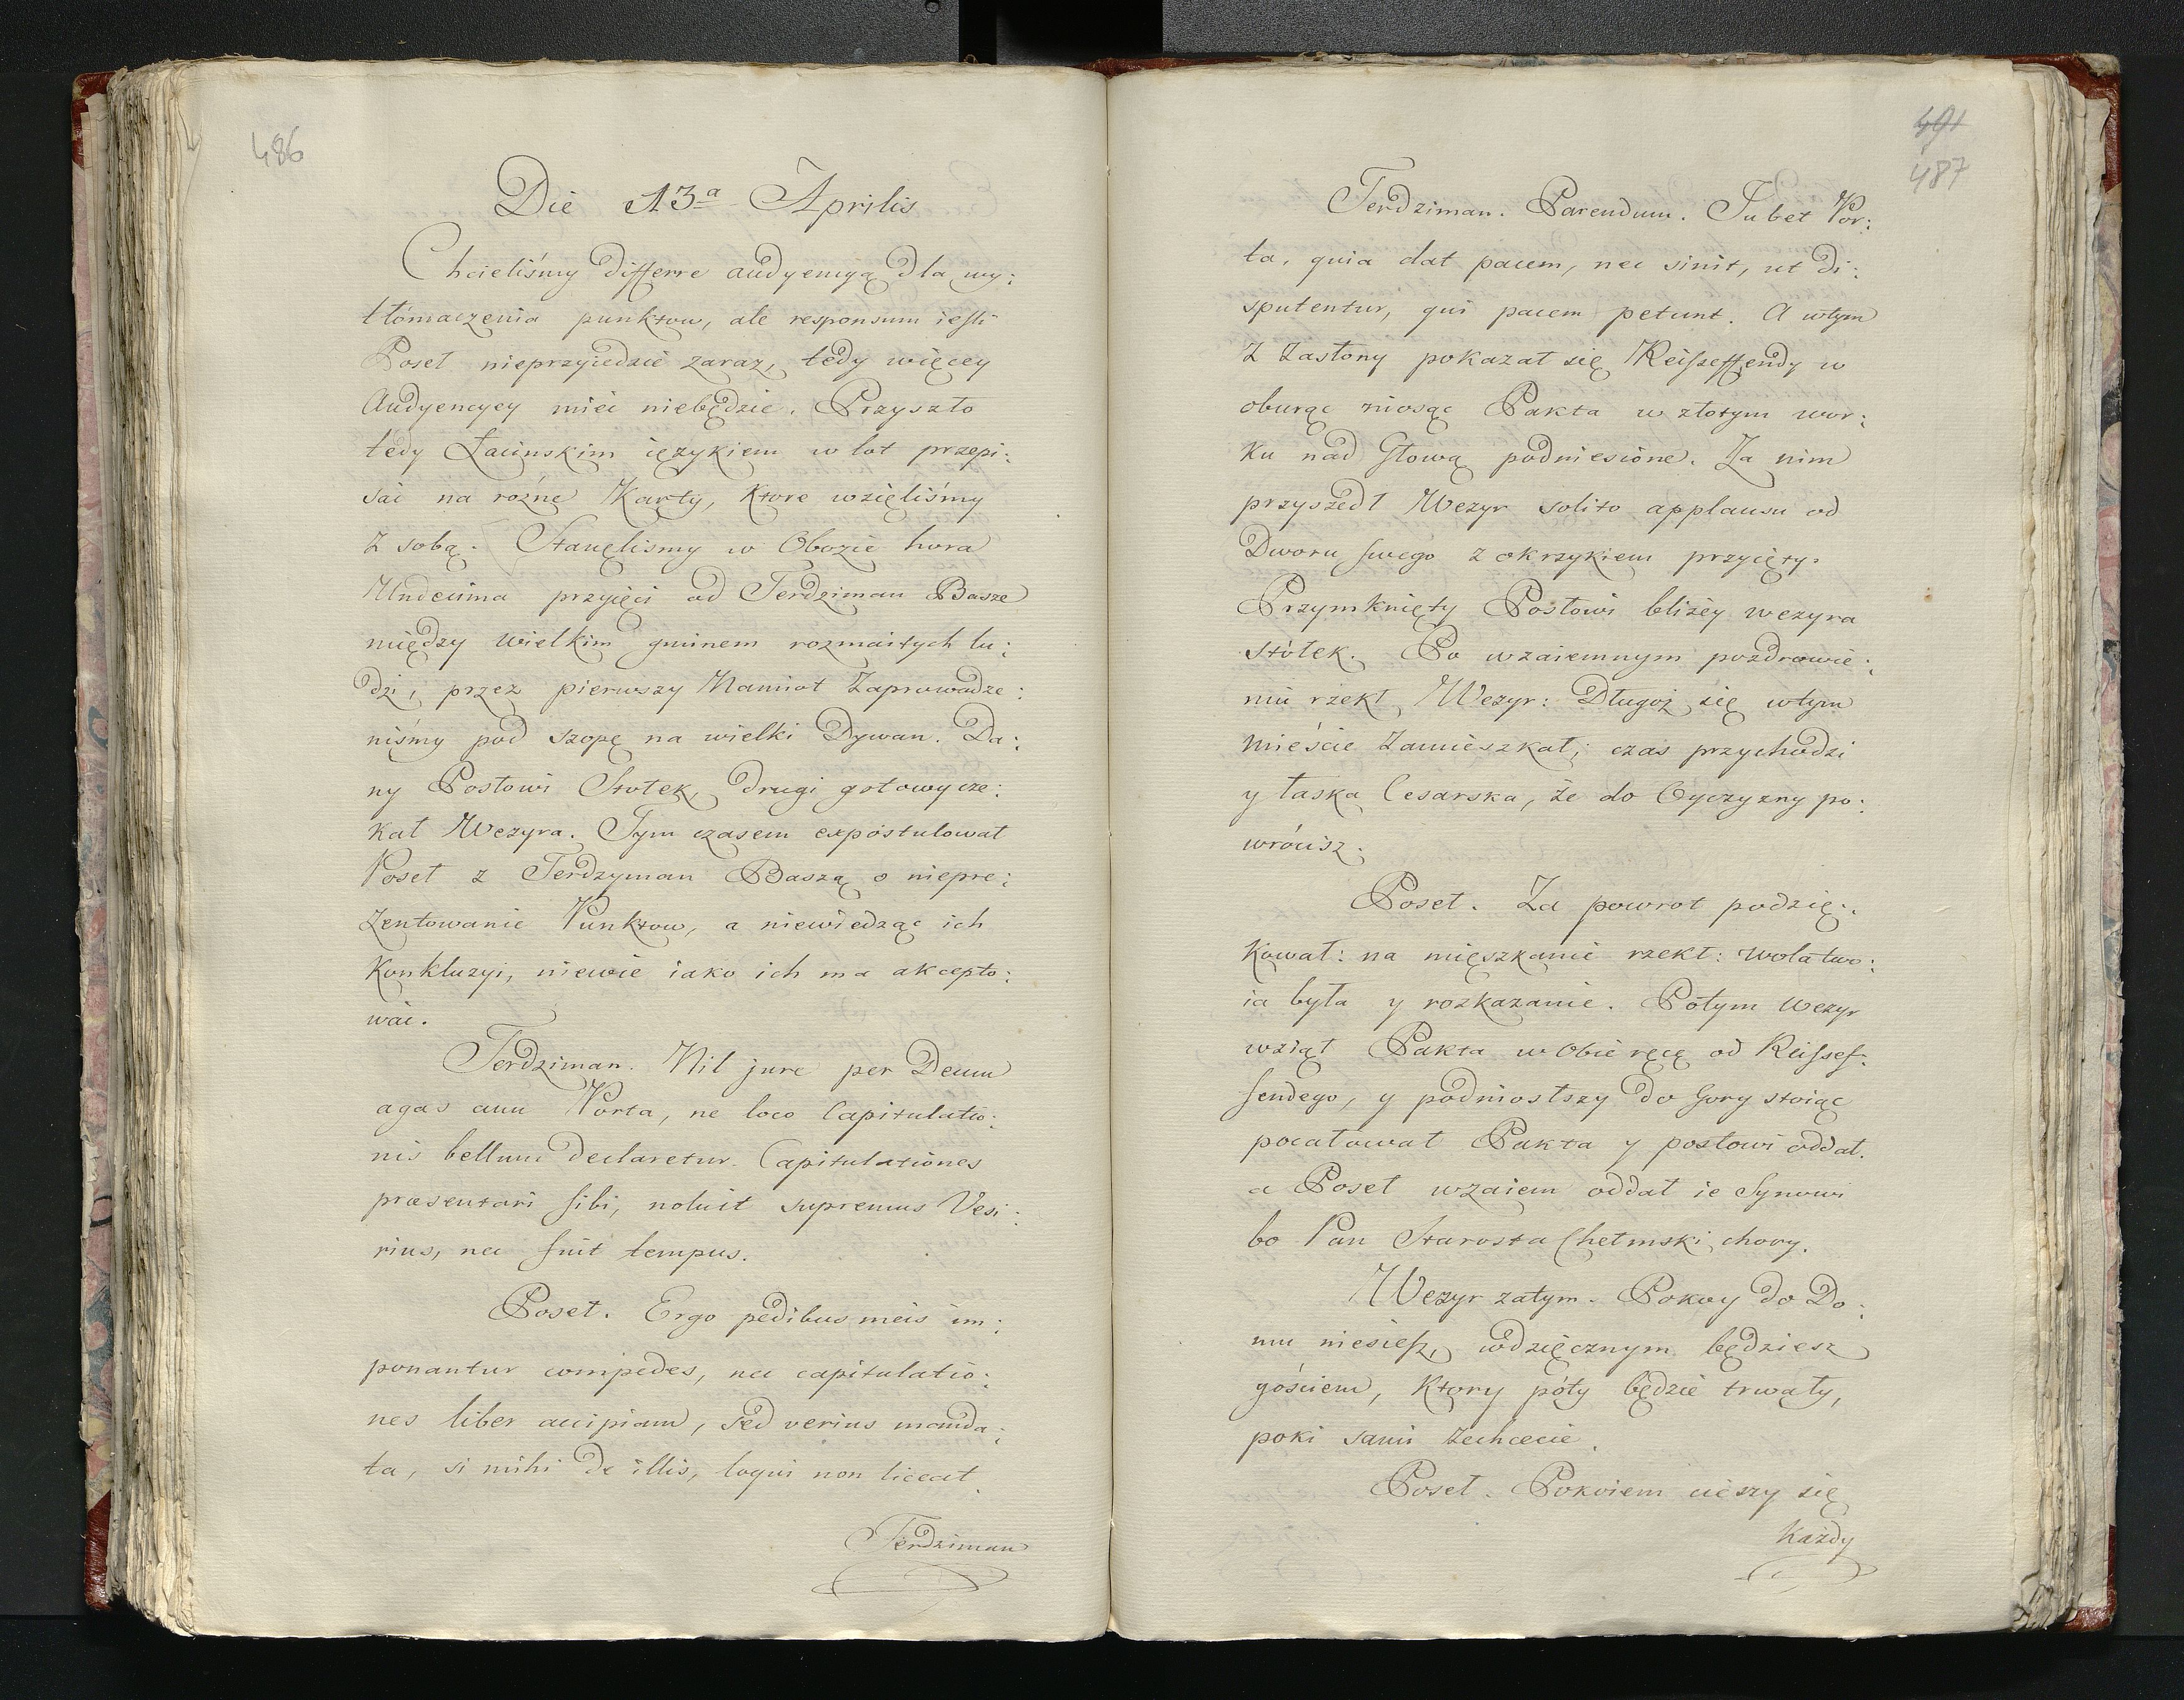 486
Die 13ª Aprilis
Chcieliśmy differre audyencyą dla wy:
tłómaczenia punktow, ale responsum ieśli
Poseł nieprzyiedzie zaraz, tedy więcey
Audyencyey mieć niebędzie. Przyszło
tedy Łacinskim ięzykiem w lot przepi:
sać na rożne Karty, Ktore wzięliśmy
Z sobą. Stanęlismy w Obozie hora
Undecima przyięci od Terdziman Basze
między wielkim gminem rozmaitych lu:
dzi, przez pierwszy Namiot Zaprowadze:
niśmy pod szopę na wielki Dywan. Da:
ny Posłowi Stołek, drugi gotowy cze:
kał Wezyra. Tym czasem expostulował
Poseł z Terdzyman Baszą o niepre:
zentowanie Punktow, a niewiedząc ich
Konkluzyi, niewie iako ich ma akcepto:
wać.
Terdziman. Nil jure per Deum
agas cum Porta, ne loco Capitulatio:
nis bellum declaretur. Capitulationes
præsentari sibi, noluit supremus Vesi:
rius, nec fuit tempus.
Poseł. Ergo pedibus meis im:
ponantur compedes, nec capitulatio:
nes liber accipiam, sed verius manda:
ta, si mihi de illis, loqui non liceat.
Terdziman
491
487
Terdziman. Parendum. Jubet Por:
ta, quia dat pacem, nec sinit, ut di:
sputentur, qui pacem petunt. A wtym
Z Zasłony pokazał się Reisseffendy w
oburąc niosąc Pakta w złotym wor:
Ku nad Głową podniesione. Za nim
przyszedł Wezyr solito applausu od
Dworu swego z okrzykiem przyięty.
Przymknięty Posłowi bliżey wezyra
stołek. Po wzaiemnym pozdrowie:
niu rzekł Wezyr: Długoż się wtym
mieście Zamieszkał; czas przychodzi
y łaska Cesarska, że do Oyczyzny po:
wrócisz.
Poseł. Za powrot podzię:
Kował: na mięszkanie rzekł: wola two:
ia była y rozkazanie. Potym Wezyr
wziął Pakta w Obie ręcę od Reissef:
fendego, y podniosłszy do Gory stoiąc
pocałował Pakta y posłowi oddał.
a Poseł wzaiem oddał ie Synowi
bo Pan Starosta Chełmski chory.
Wezyr zatym. Pokoy do Do:
mu niesiesz, wdzięcznym będziesz
gościem, Ktory póty będzie trwały,
poki sami Zechcecie.
Poseł. Pokoiem cieszy się
Każdy